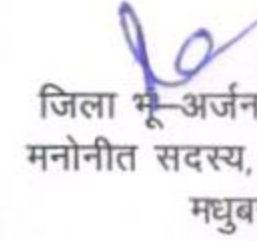 जिला भू-अर्जन
मनोनीत सदस्य,
मधुब